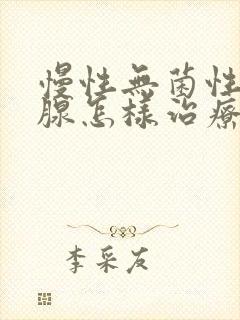 慢性無菌性
腺怎樣治療
李采友